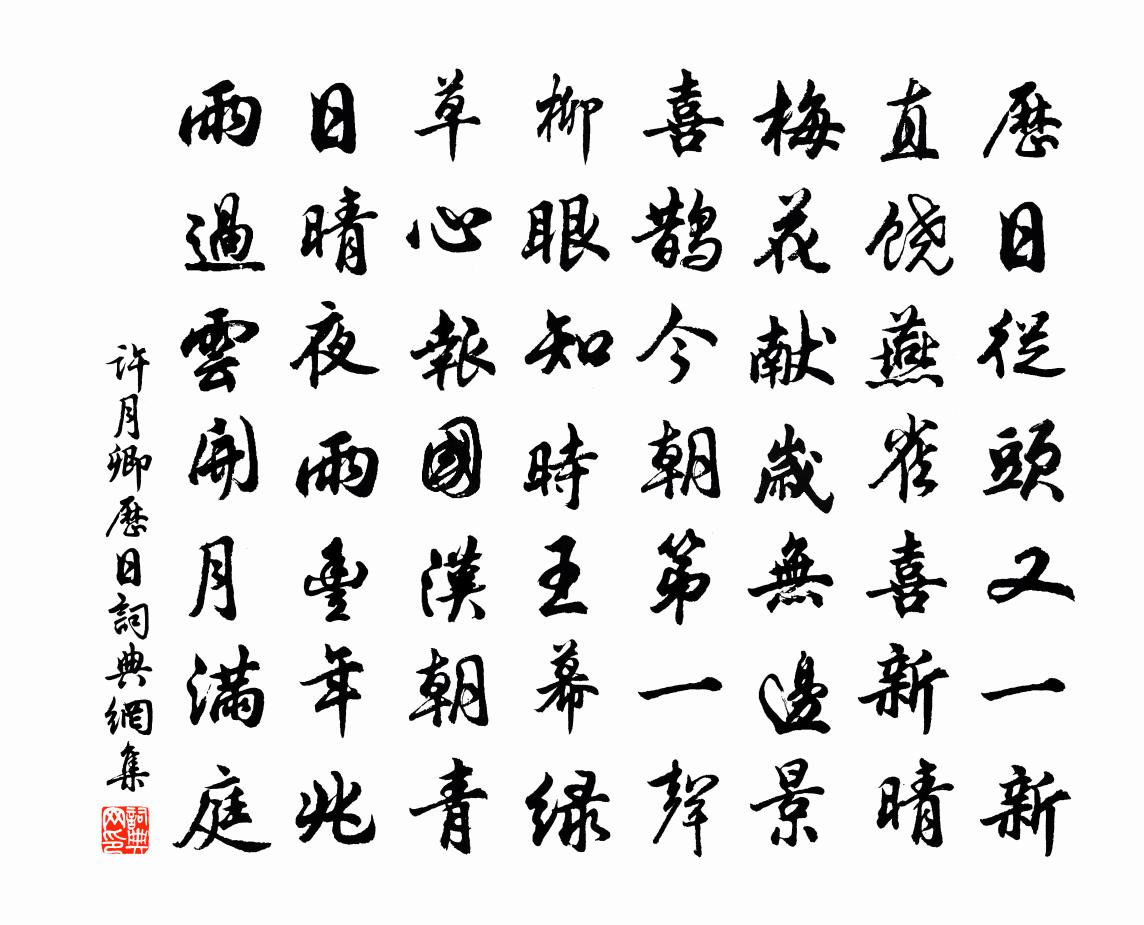 歷日從頭又一新
直饶燕雀喜新晴
梅花献歲無邊景
喜鹊今朝第一聲
柳眼知時王幕绿
草心報國漢朝青
日晴夜雨豊年兆
雨過雲開月满庭
许月卿歷日詞典網集
詞典网印